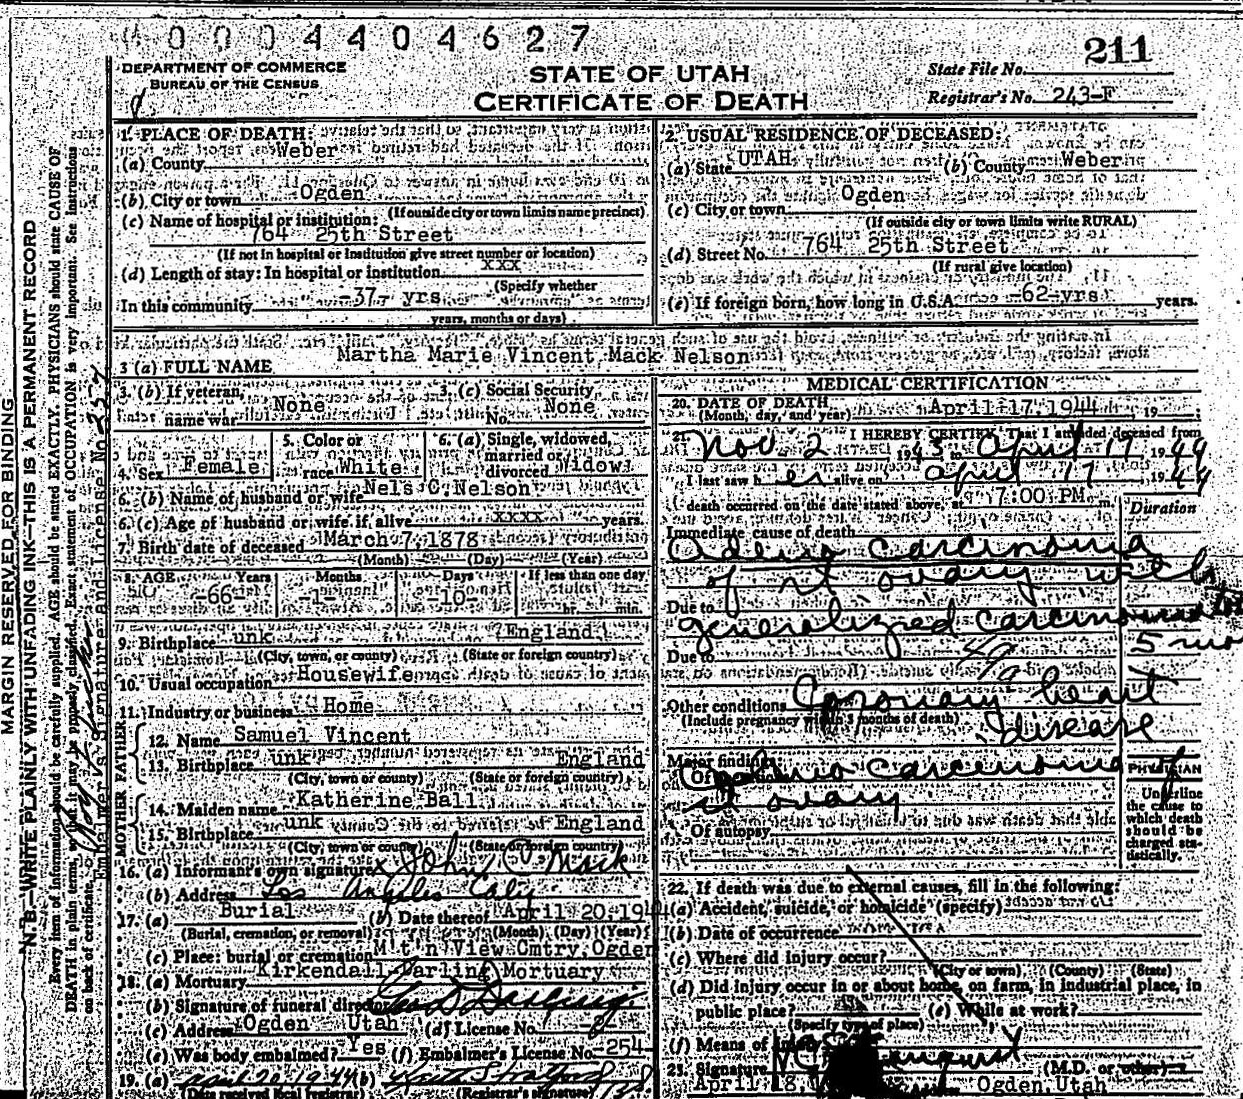 0 0 0 4 4 0 4 6 2 7
DEPARTMENT OF COMMERCE
BUREAU OF THE CENSUS
STATE OF UTAH
CERTIFICATE OF DEATH
211
State File No.
Registrar's No. 243-F
MARGIN RESERVED FOR BINDING
N. B.—WRITE PLAINLY WITH UNFADING INK—THIS IS A PERMANENT RECORD
Every item of information should be carefully supplied. AGE should be stated EXACTLY. PHYSICIANS should state CAUSE OF
DEATH in plain terms, so that it may be properly classified. Exact statement of OCCUPATION is very important. See instructions
on back of certificate.
Embalmer's Signature and License No. 254
1. PLACE OF DEATH:
(a) County Weber
(b) City or town Ogden
(If outside city or town limits name precinct)
(c) Name of hospital or institution:
764 25th Street
(If not in hospital or institution give street number or location)
(d) Length of stay: In hospital or institution xxx
(Specify whether
In this community -37- yrs
years, months or days)
2. USUAL RESIDENCE OF DECEASED:
(a) State UTAH (b) County Weber
(c) City or town Ogden
(If outside city or town limits write RURAL)
(d) Street No. 764 25th Street
(If rural give location)
(e) If foreign born, how long in U.S.A. -62-yrs years.
3 (a) FULL NAME Martha Marie Vincent Mack Nelson
3. (b) If veteran, name war None
3. (c) Social Security No. None
4. Sex Female
5. Color or race White
6. (a) Single, widowed, married or divorced Widow
6. (b) Name of husband or wife Nels C. Nelson
6. (c) Age of husband or wife if alive xxxx years.
7. Birth date of deceased March 7, 1878
(Month) (Day) (Year)
8. AGE Years Months Days If less than one day
-66- -1- -10- hr. min.
9. Birthplace unk England
(City, town, or county) (State or foreign country)
10. Usual occupation Housewife
11. Industry or business Home
FATHER
12. Name Samuel Vincent
13. Birthplace unk England
(City, town or county) (State or foreign country)
MOTHER
14. Maiden name Katherine Ball
15. Birthplace unk England
(City, town or county) (State or foreign country)
16. (a) Informant's own signature x John C Mack
(b) Address Los Angeles Calif
17. (a) Burial (b) Date thereof April 20-194
(Burial, cremation, or removal) (Month) (Day) (Year)
(c) Place: burial or cremation Mt'n View Cmtry, Ogden
18. (a) Mortuary Kirkendall Darling Mortuary
(b) Signature of funeral director
(c) Address Ogden Utah (d) License No. -8-
(e) Was body embalmed? Yes (f) Embalmer's License No. 254
19. (a) April 20 1944 (b)
(Date received local registrar) (Registrar's signature)
MEDICAL CERTIFICATION
20. DATE OF DEATH April 17 1944, 19
(Month, day, and year)
21. I HEREBY CERTIFY, That I attended deceased from
Nov 2 1943 to April 17 1944
I last saw her alive on April 17, 1944
death occurred on the date stated above, at 7:00 PM m.
Duration
Immediate cause of death
Adeno carcinoma
of rt ovary with
Due to
generalized carcinomatosis
5 mo
Due to
49
Other conditions Coronary heart
(Include pregnancy within 3 months of death)
disease
Major findings:
Of operations Adeno carcinoma of
rt ovary
Of autopsy
PHYSICIAN
Underline
the cause to
which death
should be
charged statistically.
22. If death was due to external causes, fill in the following:
(a) Accident, suicide, or homicide (specify)
(b) Date of occurrence
(c) Where did injury occur?
(City or town) (County) (State)
(d) Did injury occur in or about home, on farm, in industrial place, in
public place? (e) While at work?
(Specify type of place)
(f) Means of injury
23. Signature (M.D. or other)
April 18 Address Ogden Utah